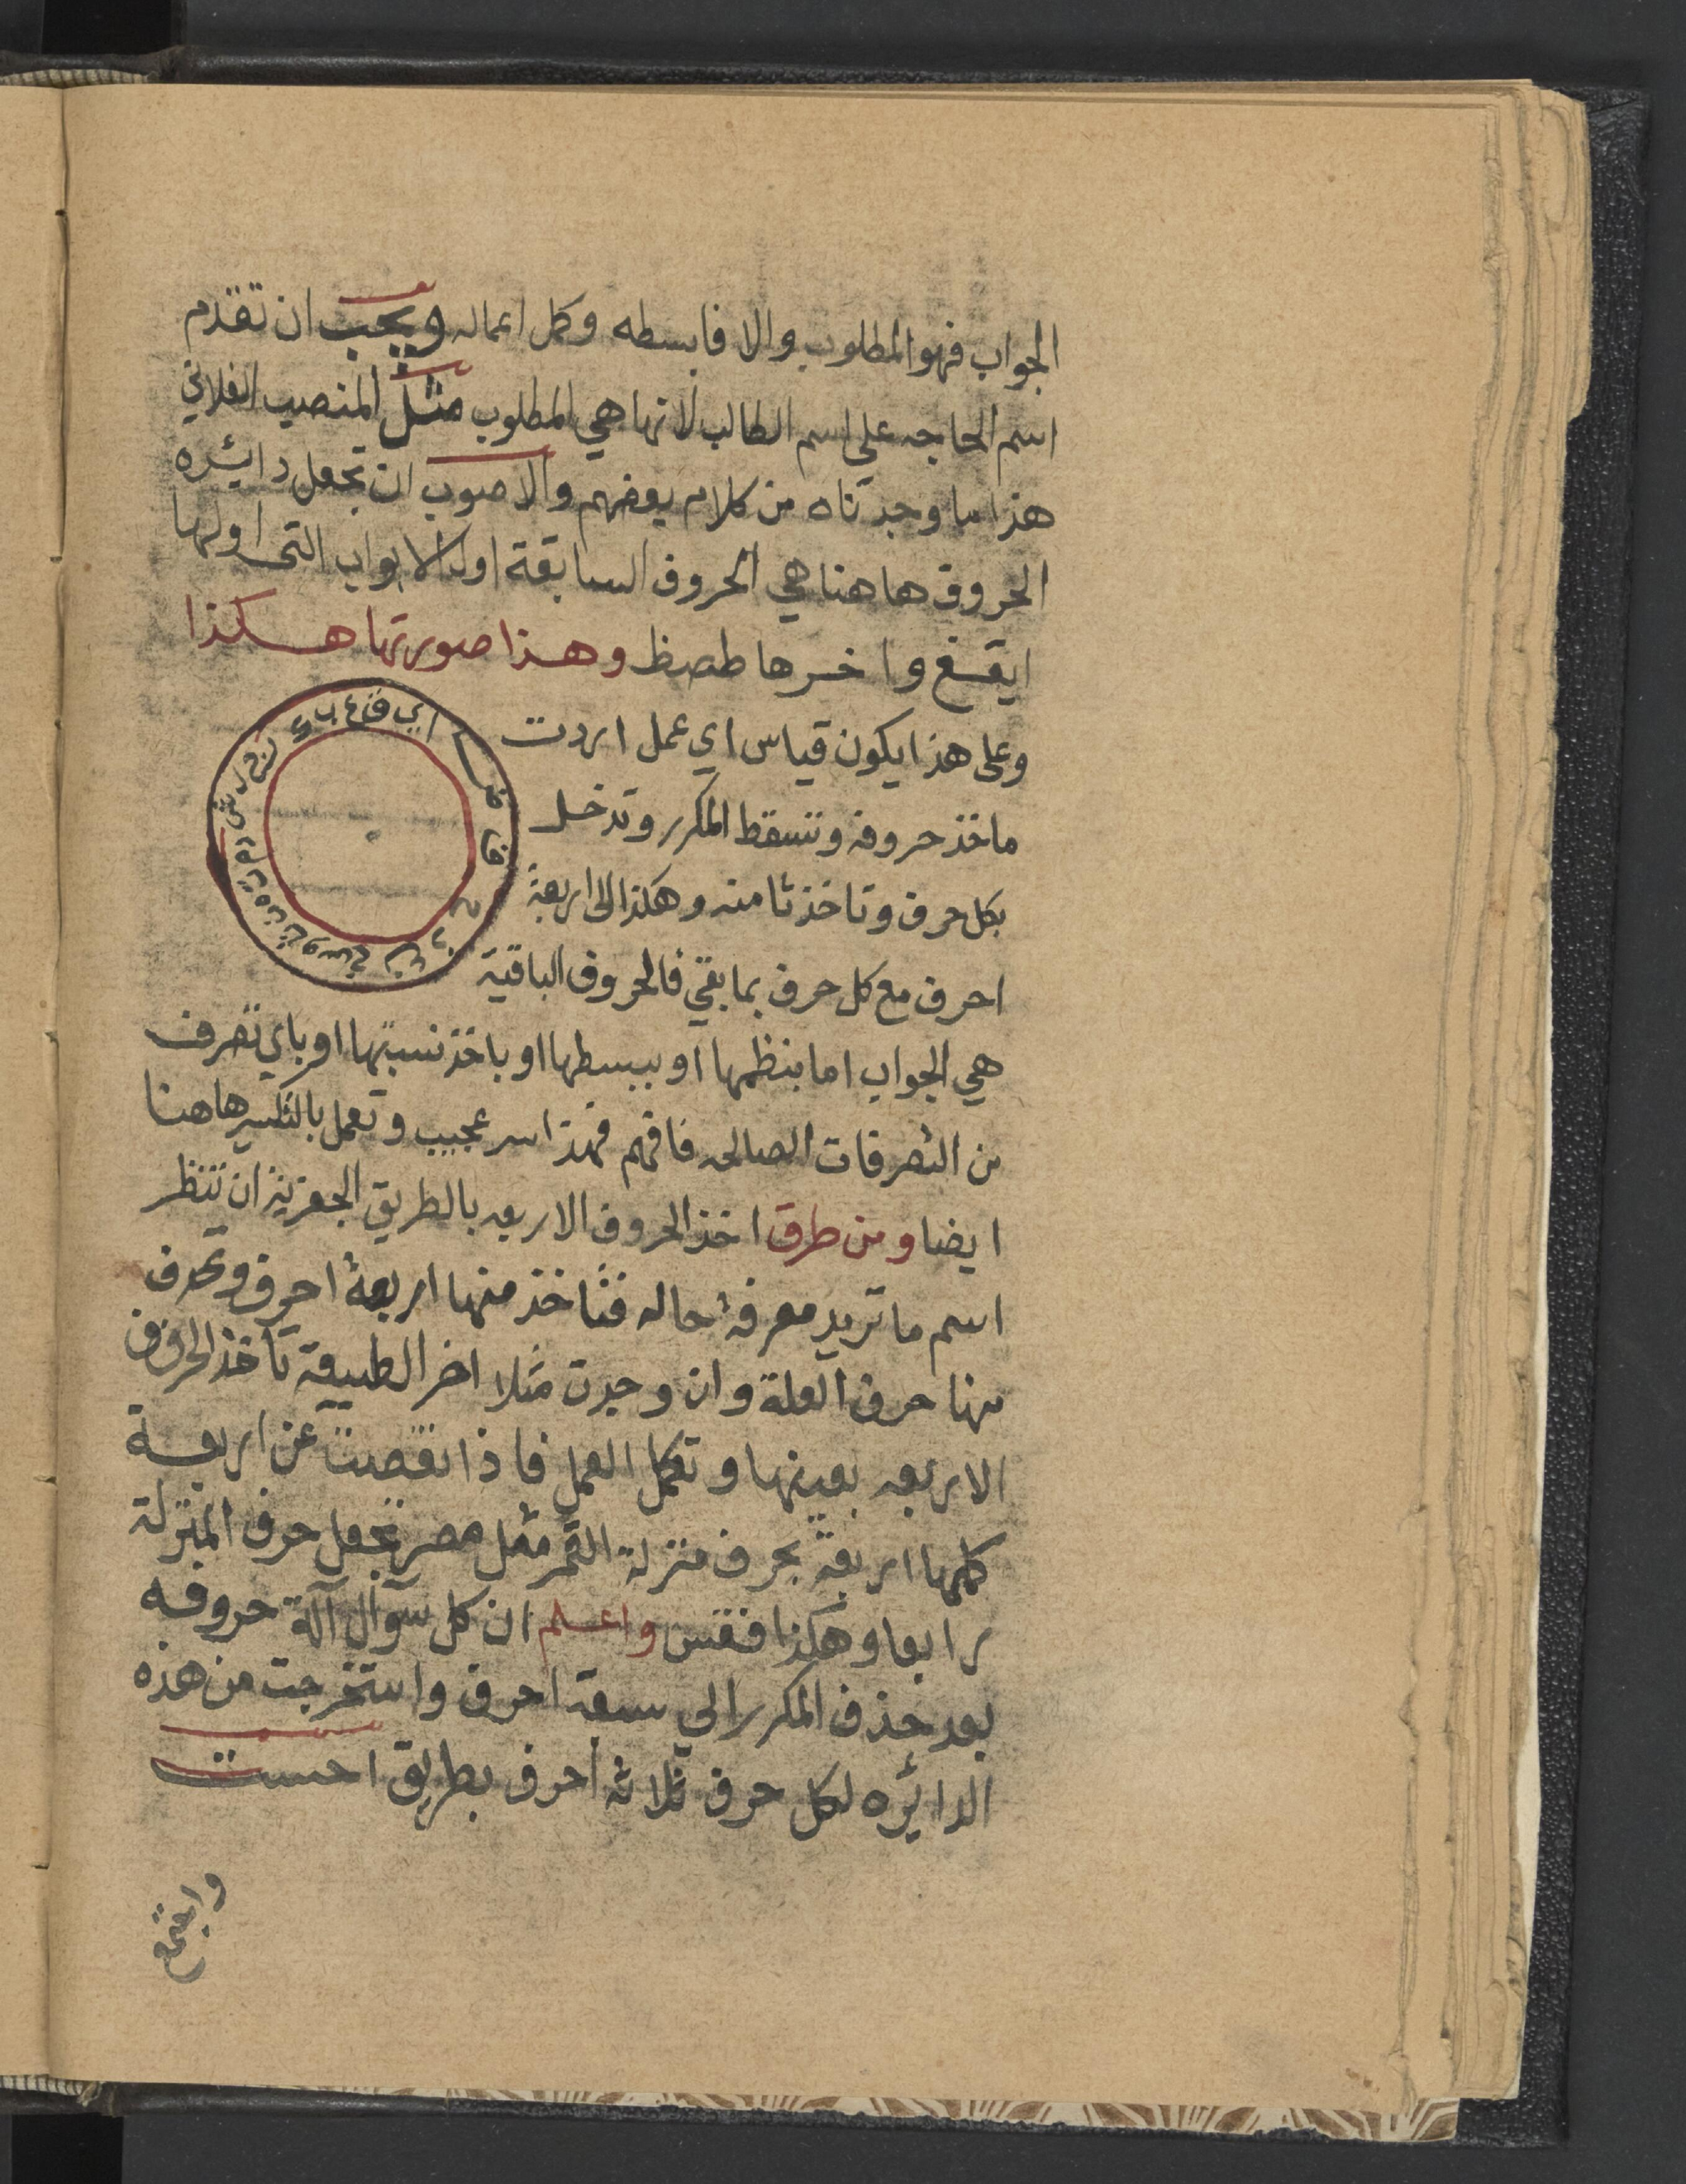 الجواب فهو المطلوب والا فابسطه وكمل اعماله ويجب ان تقدم
اسم الحاجه على اسم الطالب لانها هي المطلوب مثل المنصب الفلاني
هذا ما وجدناه من كلام بعضهم والاصوب ان تجعل دايئره
الحروف هاهنا هي الحروف السابقة اول الابواب التى اولها
ايقغ واخرها طصظ وهذا صورتها هكذا
وعلى هذا يكون قياس اي عمل اردت
ماخذ حروفه وتسقط المكرر وتدخل
بكل حرف وتاخذ ثامنه وهكذا الى اربعة
احرف مع كل حرف بما بقي فالحروف الباقية
هي الجواب اما بنظمها او ببسطها او باخذ نسبتها او باي تصرف
من التصرفات الصالحه فافهم فهذا سر عجيب وتعمل بالتكسير هاهنا
ايضا ومن طرق اخذ الحروف الاربعه بالطريق الجفريه ان تنظر
اسم ما تريد معرفة حاله فتاخذ منها اربعة احرف وتحرف
منها حرف العلة وان وجدت مثلا اخر الطبيعة تاخذ الحروف
الاربعه بعينها وتكمل العمل فاذا نقصت عن اربعة
كلمها اربعة بحرف منزلة القمر مثل مصر تجعل حرف المنزلة
رابعا وهكذا فقس واعلم ان كل سوآل آلة حروفه
بعد حذف المكرر الي سبعة احرف واستخرجت من هذه
الدايئره لكل حرف ثلاثه احرف بطريق احست
واجتمع